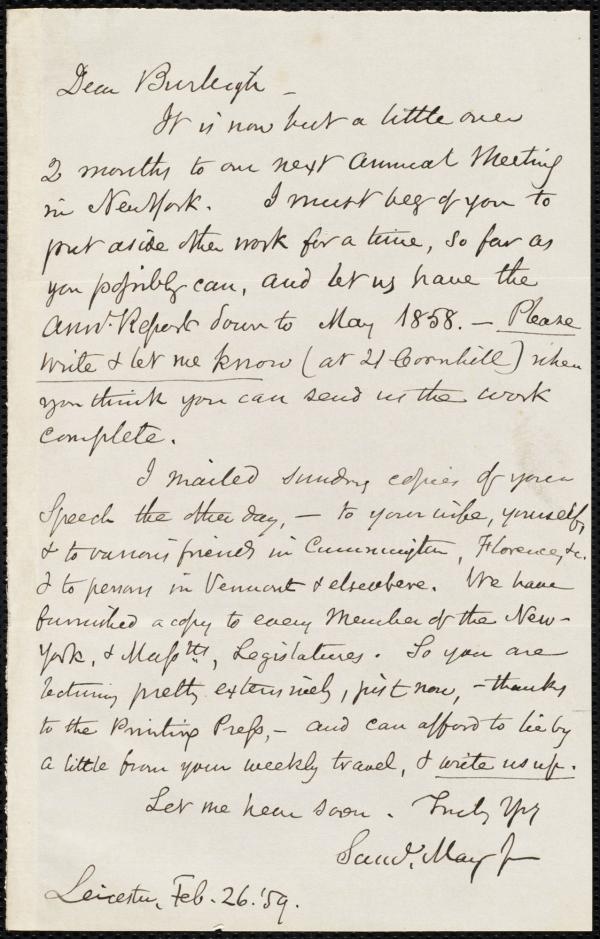 Dear Burleigh -
It is now but a little over
2 months to our next Annual Meeting
in New York. I must beg of you to
put aside other work for a time, so far as
you possibly can, and let us have the
Annl. Report down to May 1858. - Please
write & let me know (at 21 Cornhill) when
you think you can send us the work
complete.
I mailed sundry copies of your
Speech the other day, - to your wife, yourself,
& to various friends in Cummington, Florence, &c.
& to persons in Vermont & elsewhere. We have
furnished a copy to every Member of the New-
York, & Masstts, Legislatures. So you are
lecturing pretty extensively, just now, - thanks
to the Printing Press, - and can afford to lie by
a little from your weekly travel, & write us up.
Let me hear soon. Truly Yrs
Saml. May Jr
Leicester, Feb. 26. '59.